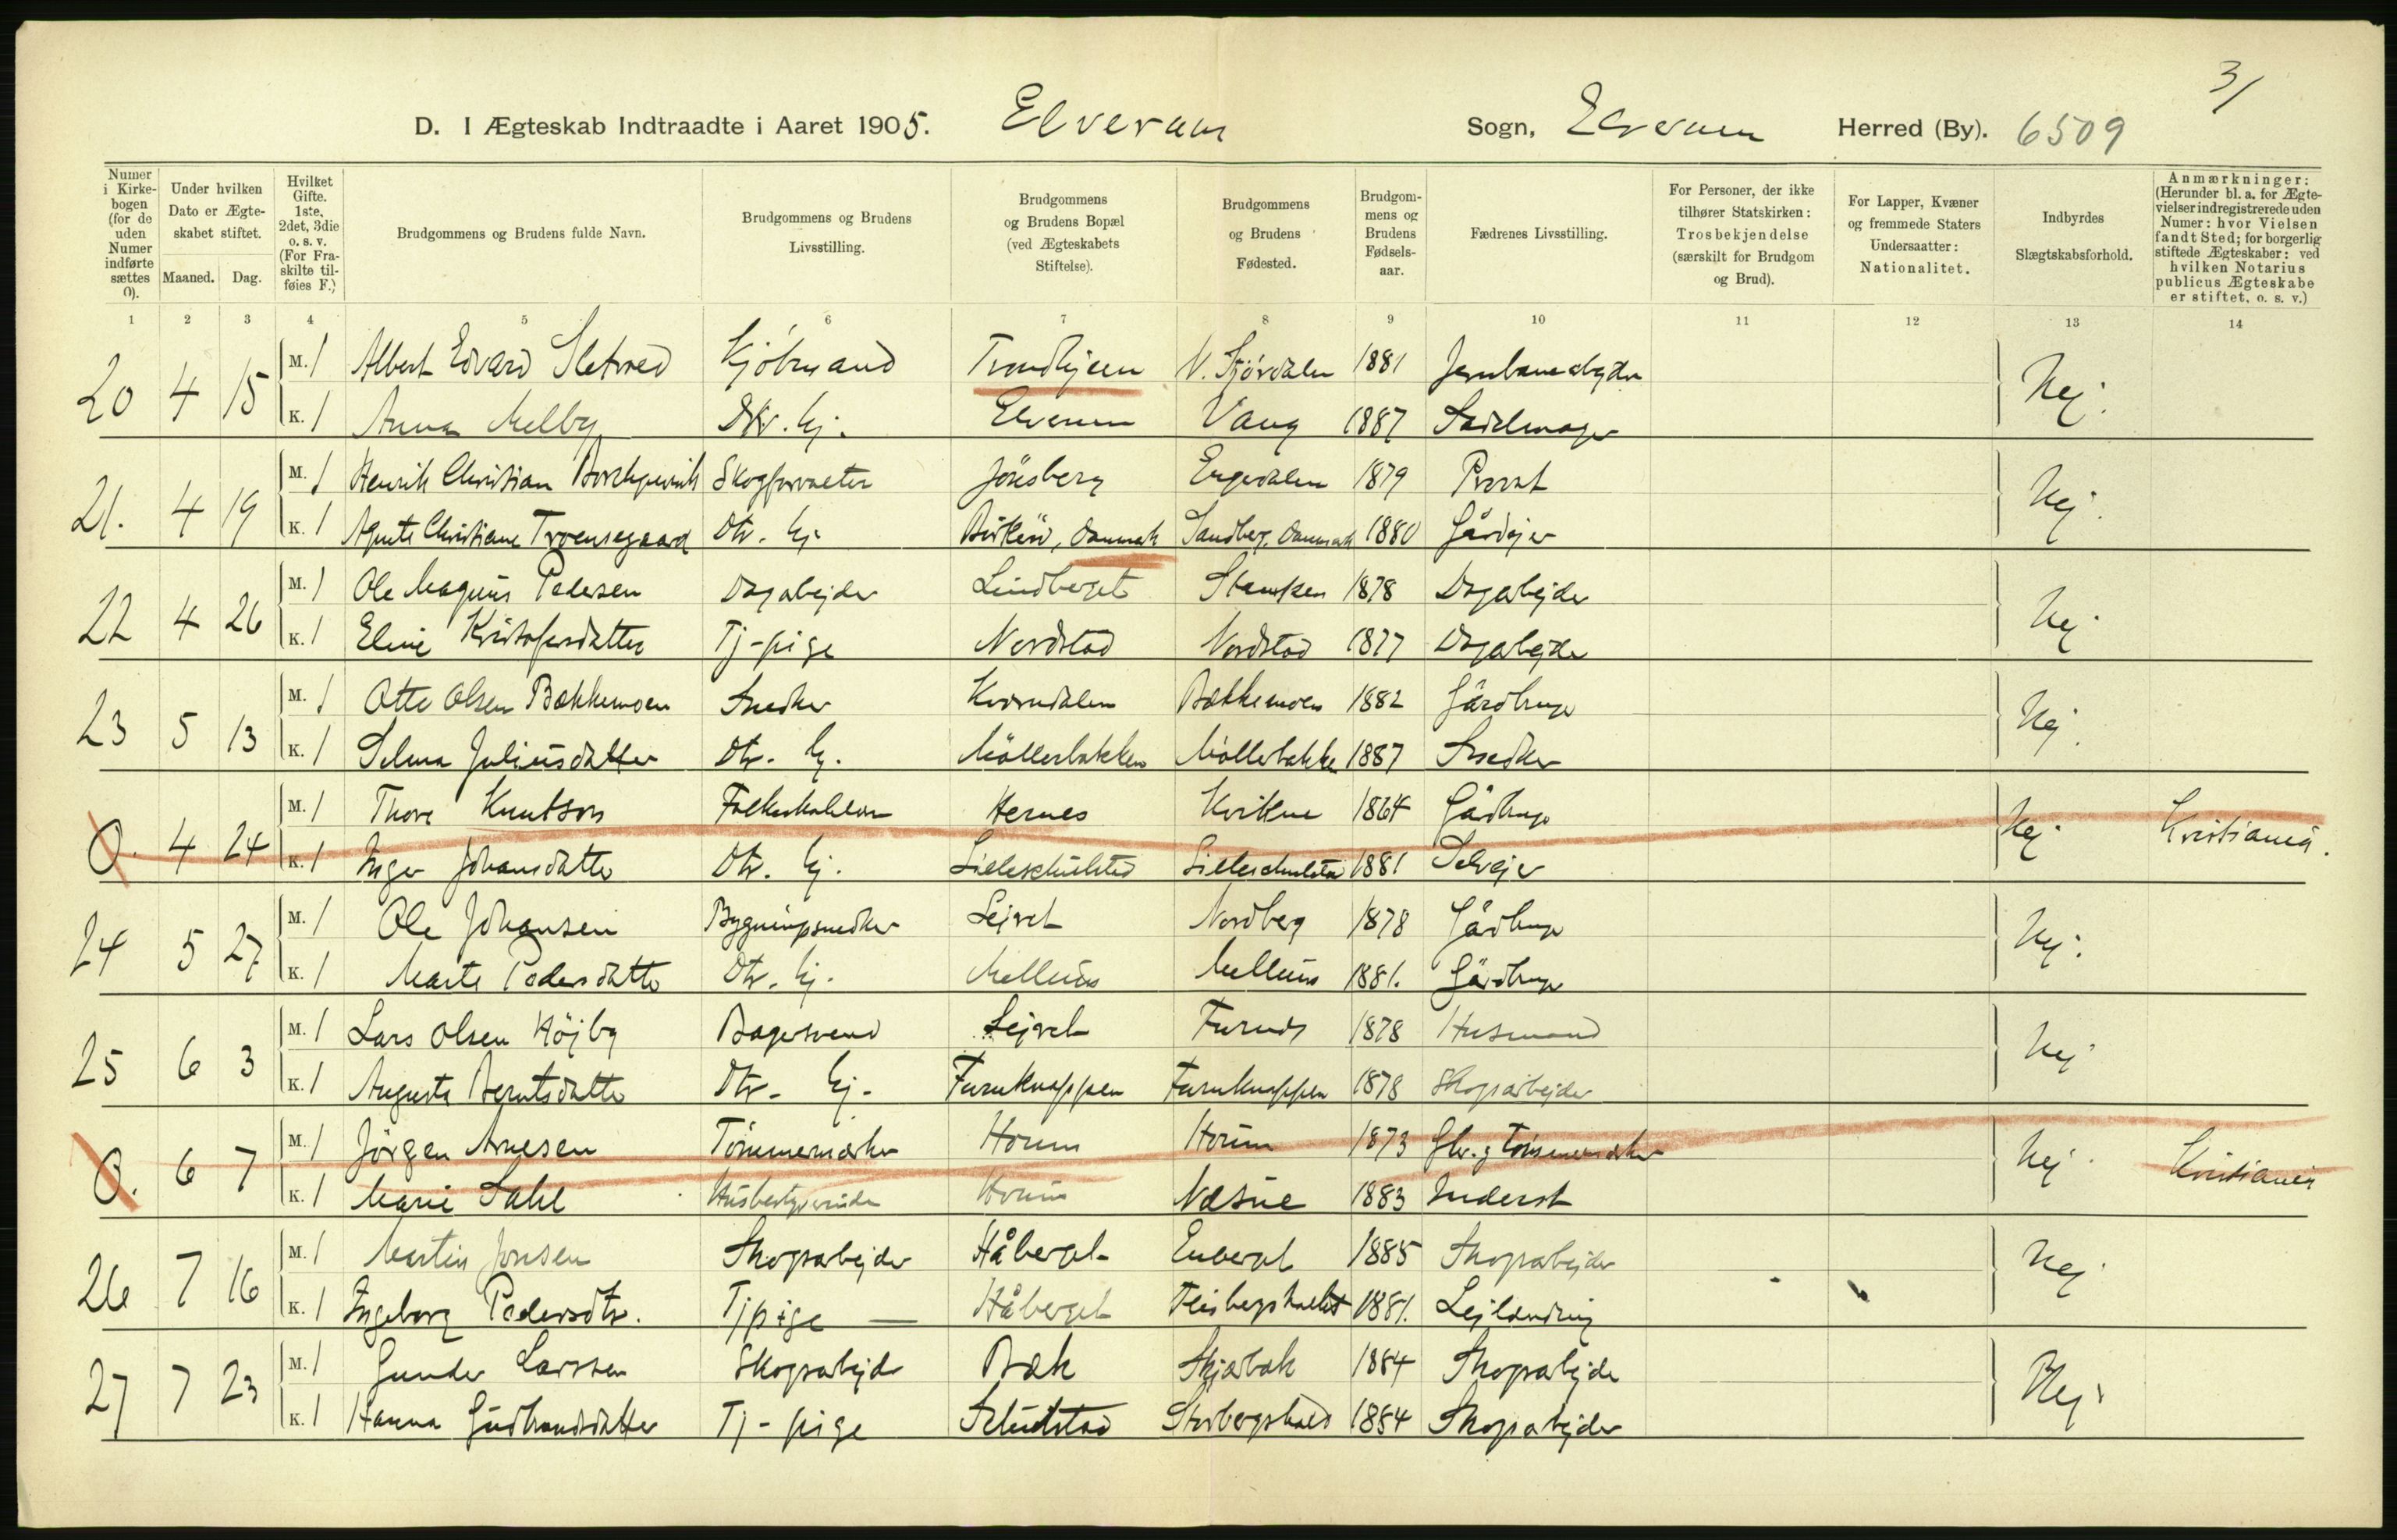 31
D. I Ægteskab Indtraadte i Aaret 1905. Elverum Sogn, Elverum Herred (By). 6509
Numer i Kirkebogen (for de uden Numer indførte sættes 0).
Under hvilken Dato er Ægteskabet stiftet.
Maaned. Dag.
Hvilket Gifte. 1ste, 2det, 3die o. s. v. (For Fraskilte tilføies F.)
Brudgommens og Brudens fulde Navn.
Brudgommens og Brudens Livsstilling.
Brudgommens og Brudens Bopæl (ved Ægteskabets Stiftelse).
Brudgommens og Brudens Fødested.
Brudgommens og Brudens Fødselsaar.
Fædrenes Livsstilling.
For Personer, der ikke tilhører Statskirken: Trosbekjendelse (særskilt for Brudgom og Brud).
For Lapper, Kvæner og fremmede Staters Undersaatter: Nationalitet.
Indbyrdes Slægtskabsforhold.
Anmærkninger: (Herunder bl. a. for Ægtevielser indregistrerede uden Numer: hvor Vielsen fandt Sted; for borgerlig stiftede Ægteskaber: ved hvilken Notarius publicus Ægteskabe er stiftet, o. s. v.)
1 2 3 4 5 6 7 8 9 10 11 12 13 14
20 4 15 M. 1 Albert Edvard Sletved Kjøbmand Trondhjem N. Stjørdalen 1881 Jernbanearbejder Nej.
K. 1 Anna Melby Dtr. hj. Elverum Vang 1887 Sadelmager
21. 4 19 M. 1 Henrik Christian Skogforvalter Jönsberg Engerdalen 1879 Provst Nej.
K. 1 Agnete Christiane Troensegaard Dtr. hj. Birkeröd, Danmark Sandberg, Danmark 1880 Gårdejer
22 4 26 M. 1 Ole Magnus Pedersen Dagarbejder Lindberget 1878 Dagarbejder Nej.
K. 1 Eline Kristofersdatter Tj-pige Nordstad Nordstad 1877 Dagarbejder
23 5 13 M. 1 Otto Olsen Bækkemoen Snedker Kværndalen Bækkemoen 1882 Gårdbruger Nej.
K. 1 Selma Juliusdatter Dtr. hj. Möllerbakken Möllerbakken 1887 Snedker
0. 4 24 M. 1 Thore Knutson Folkeskolelærer Hernes Kvikne 1864 Gårdbruger Nej. Kristiania.
K. 1 Inger Johansdatter Dtr. hj. Lilleschulstad Lilleschulstad 1881 Selvejer
24 5 27 M. 1 Ole Johansen Bygningssnedker Lejret Nordberg 1878 Gårdbruger Nej.
K. 1 Marte Pedersdatter Dtr. hj. Mellum Mellum 1881. Gårdbruger
25 6 3 M. 1 Lars Olsen Höjby Bagersvend Lejret Furnes 1878 Husmand Nej
K. 1 Augusta Berntsdatter Dtr. hj. Furuknappen Furuknappen 1878 Skogsarbejder
0. 6 7 M. 1 Jörgen Arnesen Tömmermærker Horum Horum 1873 Gbr. g tömmermærker Nej. Kristiania
K. 1 Marie Dahl Husbestyrerinde Horum Næsne 1883 Inderst
26 7 16 M. 1 Martin Jonsen Skogsarbejder Håberget Enberget 1885 Skogsarbejder Nej.
K. 1 Ingeborg Pedersdtr. Tjpige — Håberget 1881. Lejlænding
27 7 23 M. 1 Gunder Larssen Skogsarbejder Bæk Skjærbæk 1884 Skogsarbejder Nej.
K. 1 Hanna Gudbrandsdatter Tj-pige Schulstad 1884 Skogsarbejder